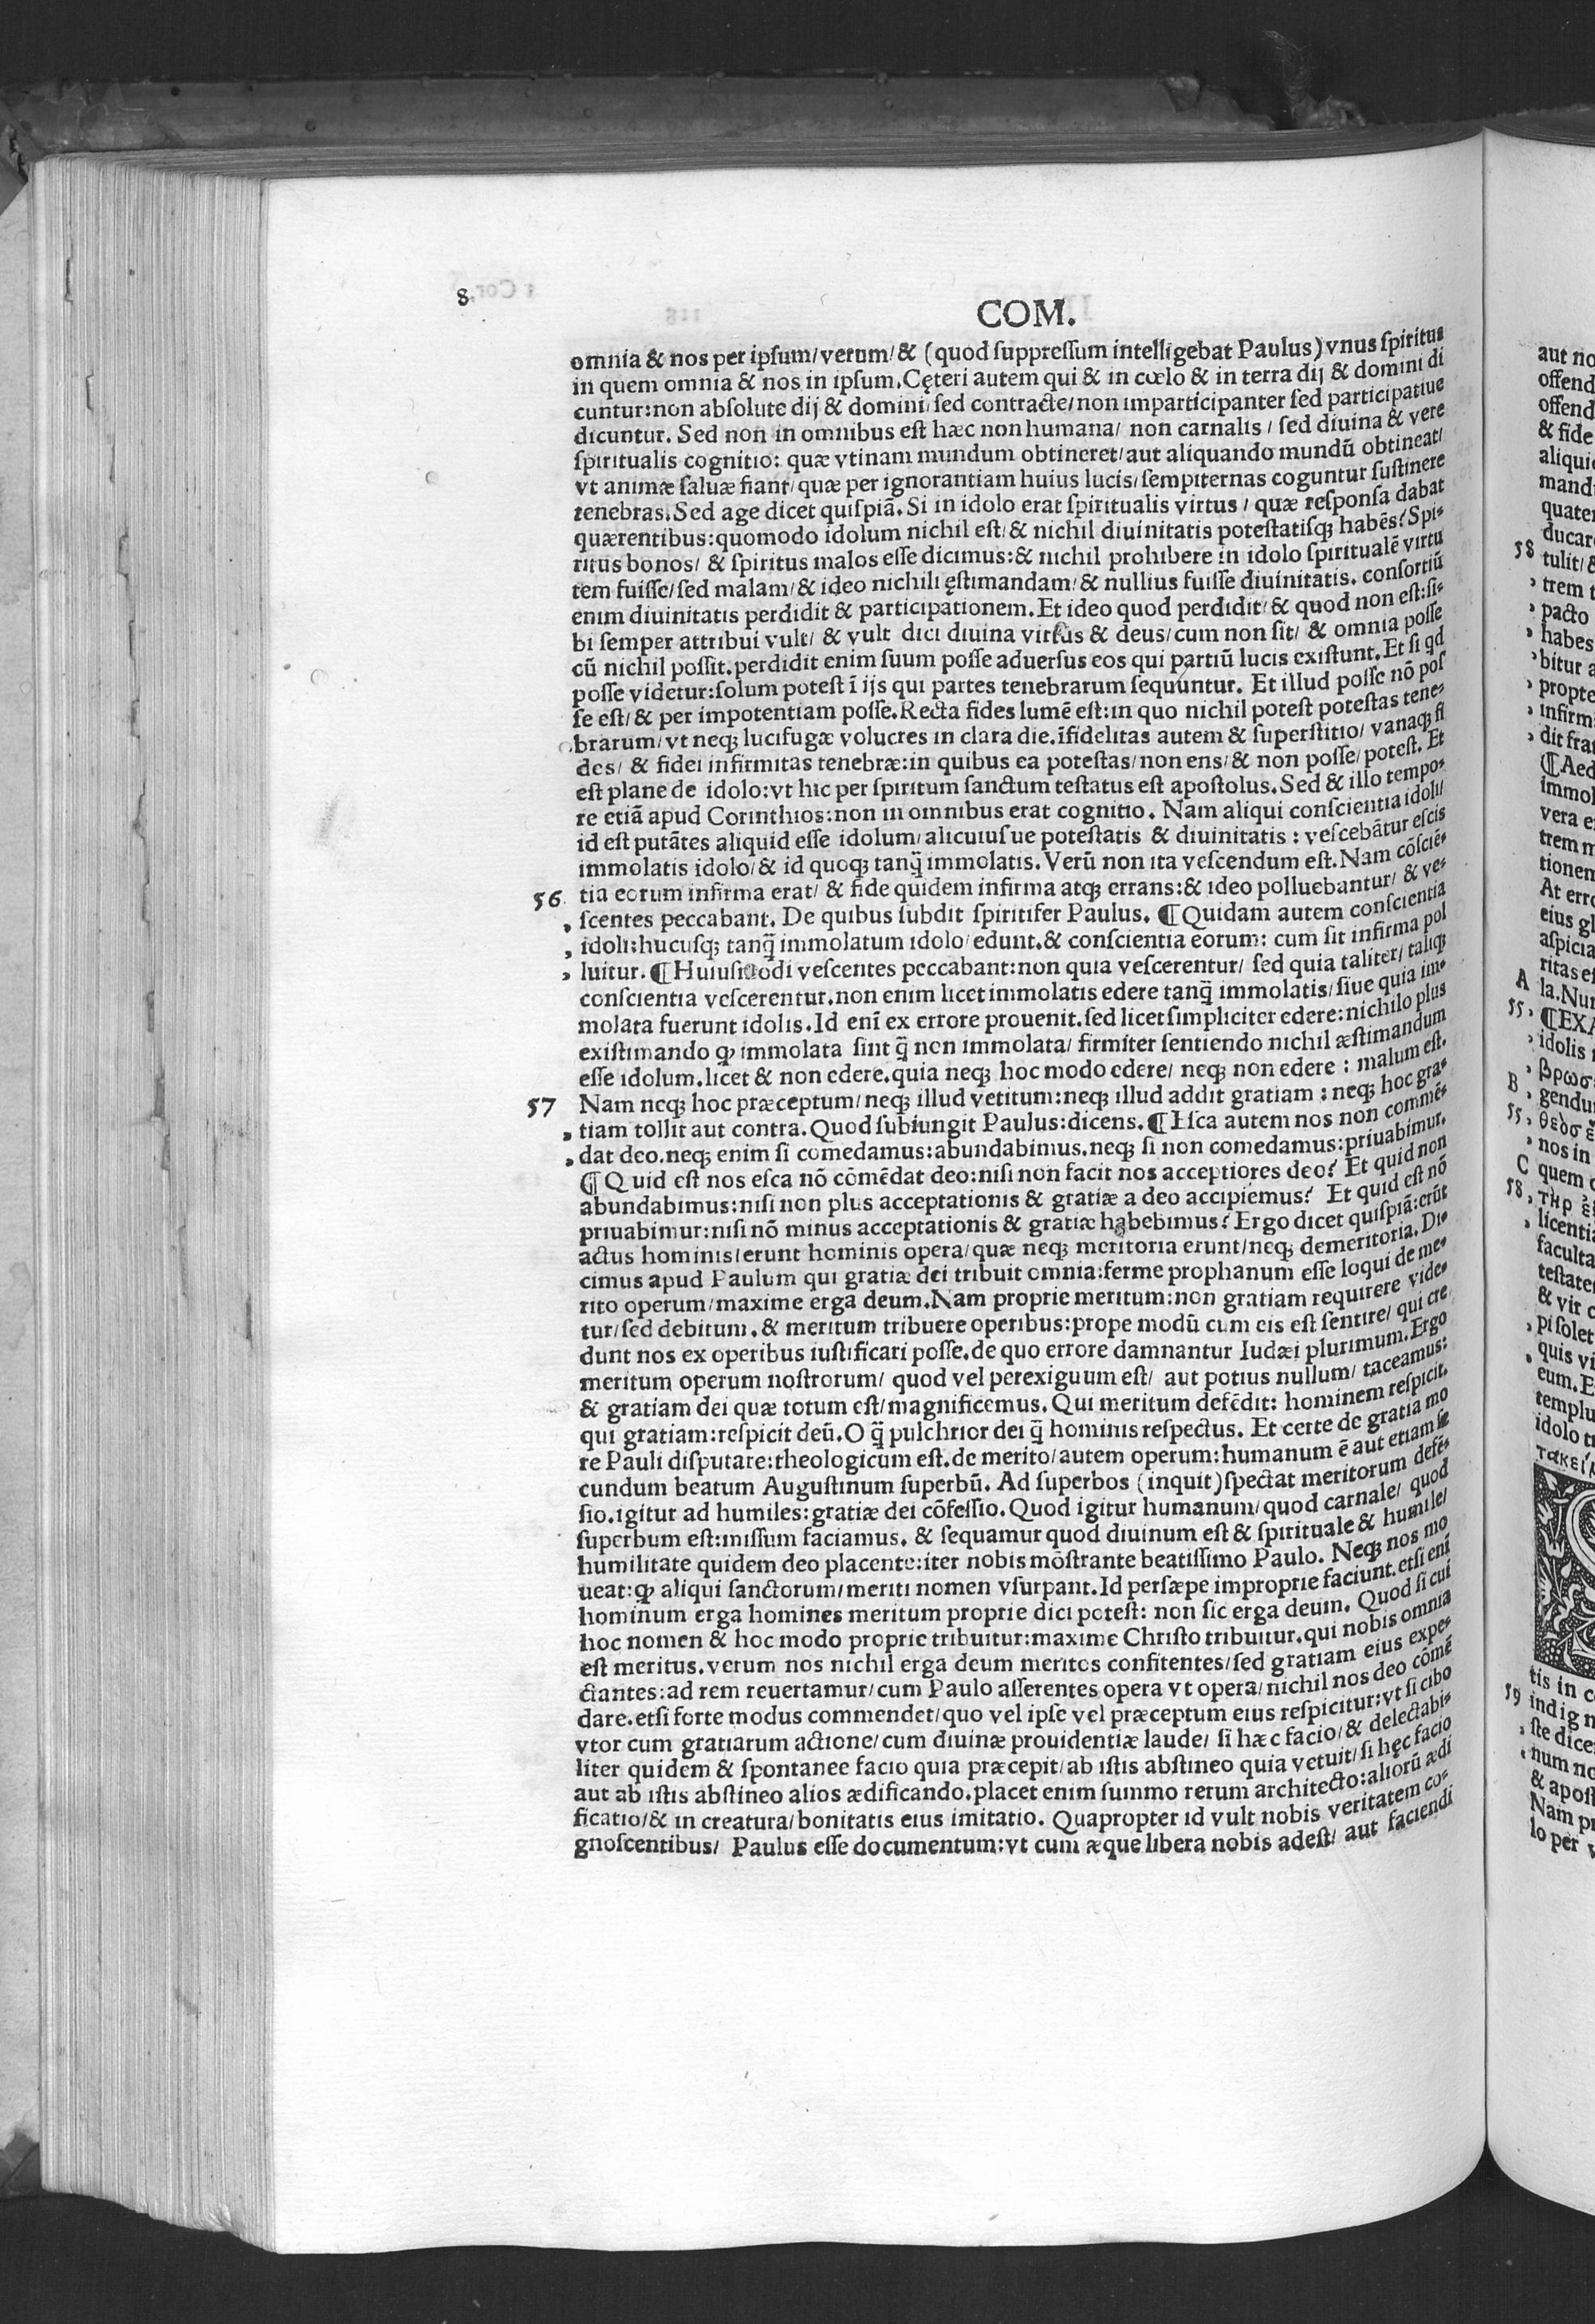 8
COM.
omnia & nos per ipſum/verum/& (quod ſuppreſſum intelligebat Paulus) vnus ſpiritus
in quem omnia & nos in ipſum. Cęteri autem qui & in cœlo & in terra dij & domini di
cuntur: non abſolute dij & domini/ ſed contracte/non imparticipanter ſed participatiue
dicuntur. Sed non in omnibus eſt hæc non humana/ non carnalis / ſed diuina & vere
ſpiritualis cognitio: quæ vtinam mundum obtineret/aut aliquando mundū obtineat/
vt animæ ſaluæ fiant/quæ per ignorantiam huius lucis/ſempiternas coguntur ſuſtinere
tenebras. Sed age dicet quiſpiā. Si in idolo erat ſpiritualis virtus / quæ reſponſa dabat
quærentibus: quomodo idolum nichil eſt/& nichil diuinitatis poteſtatiſq; habēs? Spi-
ritus bonos/ & ſpiritus malos eſſe dicimus: & nichil prohibere in idolo ſpiritualē virtu
tem fuiſſe/ſed malam/& ideo nichili ęſtimandam/& nullius fuiſſe diuinitatis. conſortiū
enim diuinitatis perdidit & participationem. Et ideo quod perdidit/& quod non eſt: ſi-
bi ſemper attribui vult/ & vult dici diuina virtus & deus/cum non ſit/ & omnia poſſe
cū nichil poſſit. perdidit enim ſuum poſſe aduerſus eos qui partiū lucis exiſtunt. Et ſi qd
poſſe videtur: ſolum poteſt ī ijs qui partes tenebrarum ſequuntur. Et illud poſſe nō poſ
ſe eſt/ & per impotentiam poſſe. Recta fides lumē eſt: in quo nichil poteſt poteſtas tene-
brarum/vt neq; lucifugæ volucres in clara die. īfidelitas autem & ſuperſtitio/ vanaq; fi
des/ & fidei infirmitas tenebræ: in quibus ea poteſtas/non ens/& non poſſe/poteſt. Et
eſt plane de idolo: vt hic per ſpiritum ſanctum teſtatus eſt apoſtolus. Sed & illo tempo-
re etiā apud Corinthios: non in omnibus erat cognitio. Nam aliqui conſcientia idoli/
id eſt putātes aliquid eſſe idolum/alicuiuſue poteſtatis & diuinitatis : veſcebātur eſcis
immolatis idolo/& id quoq; tanq̄ immolatis. Verū non ita veſcendum eſt. Nam cōſciē-
56 tia eorum infirma erat/ & fide quidem infirma atq; errans: & ideo polluebantur/ & ve-
, ſcentes peccabant. De quibus ſubdit ſpiritifer Paulus. ¶ Quidam autem conſcientia
, idoli: hucuſq; tanq̄ immolatum idolo/edunt. & conſcientia eorum: cum ſit infirma pol
, luitur. ¶ Huiuſmodi veſcentes peccabant: non quia veſcerentur/ ſed quia taliter/ taliq;
conſcientia veſcerentur. non enim licet immolatis edere tanq̄ immolatis/ſiue quia im-
molata fuerunt idolis. Id enī ex errore prouenit. ſed licet ſimpliciter edere: nichilo plus
exiſtimando ꝙ immolata ſint q̄ non immolata/ firmiter ſentiendo nichil æſtimandum
eſſe idolum. licet & non edere. quia neq; hoc modo edere/ neq; non edere : malum eſt.
57 Nam neq; hoc præceptum/neq; illud vetitum: neq; illud addit gratiam : neq; hoc gra-
, tiam tollit aut contra. Quod ſubiungit Paulus: dicens. ¶ Eſca autem nos non commē-
, dat deo. neq; enim ſi comedamus: abundabimus. neq; ſi non comedamus: priuabimur.
¶ Quid eſt nos eſca nō cōmēdat deo: niſi non facit nos acceptiores deo? Et quid non
abundabimus: niſi non plus acceptationis & gratiæ a deo accipiemus? Et quid eſt nō
priuabimur: niſi nō minus acceptationis & gratiæ habebimus? Ergo dicet quiſpiā: erūt
actus hominis/erunt hominis opera/quæ neq; meritoria erunt/neq; demeritoria. Di-
cimus apud Paulum qui gratiæ dei tribuit omnia: ferme prophanum eſſe loqui de me-
rito operum/maxime erga deum. Nam proprie meritum: non gratiam requirere vide-
tur/ſed debitum. & meritum tribuere operibus: prope modū cum eis eſt ſentire/ qui cre
dunt nos ex operibus iuſtificari poſſe. de quo errore damnantur Iudæi plurimum. Ergo
meritum operum noſtrorum/ quod vel perexiguum eſt/ aut potius nullum/ taceamus:
& gratiam dei quæ totum eſt/magnificemus. Qui meritum defēdit: hominem reſpicit.
qui gratiam: reſpicit deū. O q̄ pulchrior dei q̄ hominis reſpectus. Et certe de gratia mo
re Pauli diſputare: theologicum eſt. de merito/autem operum: humanum ē aut etiam ſe
cundum beatum Auguſtinum ſuperbū. Ad ſuperbos (inquit) ſpectat meritorum defē-
ſio. igitur ad humiles: gratiæ dei cōfeſſio. Quod igitur humanum/quod carnale/ quod
ſuperbum eſt: miſſum faciamus. & ſequamur quod diuinum eſt & ſpirituale & humile/
humilitate quidem deo placente: iter nobis mōſtrante beatiſſimo Paulo. Neq; nos mo
ueat: ꝙ aliqui ſanctorum/meriti nomen vſurpant. Id perſæpe improprie faciunt. etſi enī
hominum erga homines meritum proprie dici poteſt: non ſic erga deum. Quod ſi cui
hoc nomen & hoc modo proprie tribuitur: maxime Chriſto tribuitur. qui nobis omnia
eſt meritus. verum nos nichil erga deum meritos confitentes/ſed gratiam eius expe-
ctantes: ad rem reuertamur/cum Paulo aſſerentes opera vt opera/nichil nos deo cōmē
dare. etſi forte modus commendet/quo vel ipſe vel præceptum eius reſpicitur: vt ſi cibo
vtor cum gratiarum actione/cum diuinæ prouidentiæ laude/ ſi hæc facio/& delectabi-
liter quidem & ſpontanee facio quia præcepit/ab iſtis abſtineo quia vetuit/ſi hęc facio
aut ab iſtis abſtineo alios ædificando. placet enim ſummo rerum architecto: aliorū ædi
ficatio/& in creatura/bonitatis eius imitatio. Quapropter id vult nobis veritatem co-
gnoſcentibus/ Paulus eſſe documentum: vt cum æque libera nobis adeſt/ aut faciendi
aut no
offend
offend
& fide
aliqui
mand
quate
ducar
58 tulit/
, trem
, pacto
, habes
, bitur a
, propte
, infirm
, dit fra
¶ Aed
immol
vera e
trem m
tionem
At erro
eius gl
aſpicia
ritas eſ
A la. Nu
55, ¶ EXA
, idolis
, βρωσ
B gendu
55, 
, nos in
C quem
58, 
, licenti
faculta
teſtate
& vir
, pi ſolet
, quis vi
, eum. E
templu
idolo
tis in c
59 indign
, ſte dice
, num no
& apoſt
Nam p
lo per